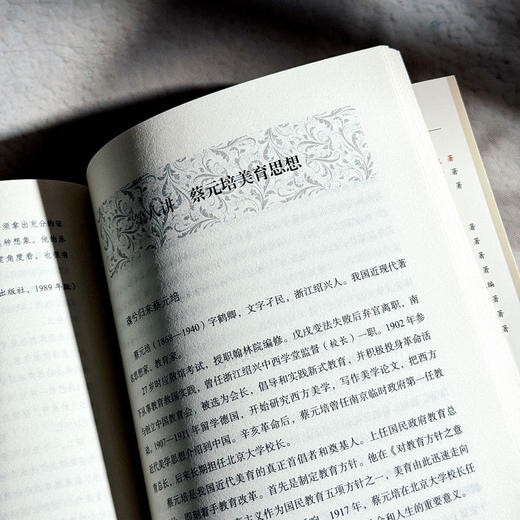 荣拿出充分的证
种想象。他的基
赏角度看，也很有
出版社，1989年版）
第八讲 蔡元培美育思想
魂兮归来蔡元培
蔡元培（1868—1940）字鹤卿，又字孑民，浙江绍兴人。我国近现代著
名思想家、教育家。
27岁时应散馆考试，授职翰林院编修。戊戌变法失败后弃官离职，南
下从事教育救国实践，曾任浙江绍兴中西学堂监督（校长）一职。1902年参
与创立中国教育会，被选为会长，倡导和实践新式教育，并积极投身革命活
动。1907—1911年留学德国，开始研究西方美学，写作美学论文，把西方
近代美学思想介绍到中国。辛亥革命后，蔡元培曾任南京临时政府第一任教
育总长，后来长期担任北京大学校长。
蔡元培是我国近代美育的真正首倡者和奠基人。上任国民政府教育总
长，即制着手教育改革。首先是制定教育方针。他在《对教育方针之意
主义作为国民教育五项方针之一，美育由此迅速走向
响。1917年，蔡元培在北京大学校长任
会和人生的重要意义。
著
著
著
著
著
著
著
编
著
著